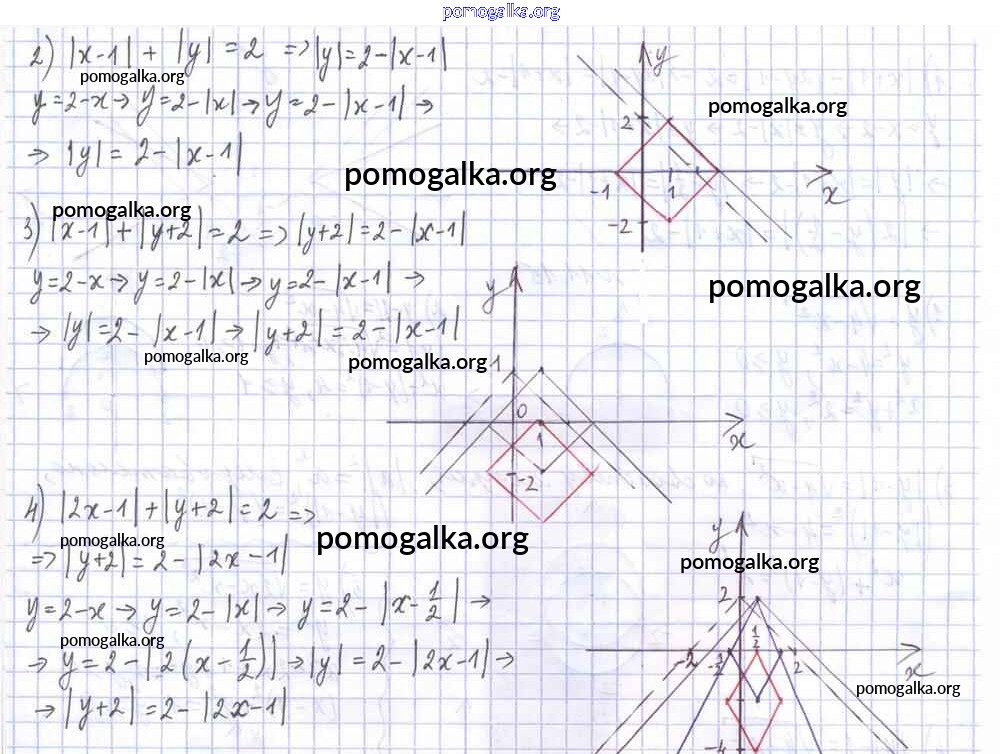 pomogalka.org
2) |x-1| + |y| = 2 => |y| = 2-|x-1|
pomogalka.org
y=2-x → y=2-|x| → y=2-|x-1| →
→ |y| = 2-|x-1|
pomogalka.org
pomogalka.org
y
2
-1
1
x
-2
pomogalka.org
3) |x-1| + |y+2| = 2 => |y+2| = 2-|x-1|
y=2-x → y=2-|x| → y=2-|x-1| →
→ |y|=2-|x-1| → |y+2| = 2-|x-1|
pomogalka.org
pomogalka.org
pomogalka.org
y
1
0
1
x
-2
4) |2x-1| + |y+2| = 2 =>
pomogalka.org
=> |y+2| = 2-|2x-1|
pomogalka.org
y=2-x → y=2-|x| → y=2-|x-1/2| →
pomogalka.org
→ y=2-|2(x-1/2)| → |y|=2-|2x-1| →
→ |y+2| = 2-|2x-1|
y
pomogalka.org
2
1/2
-2
-1/2
2
x
pomogalka.org
-4